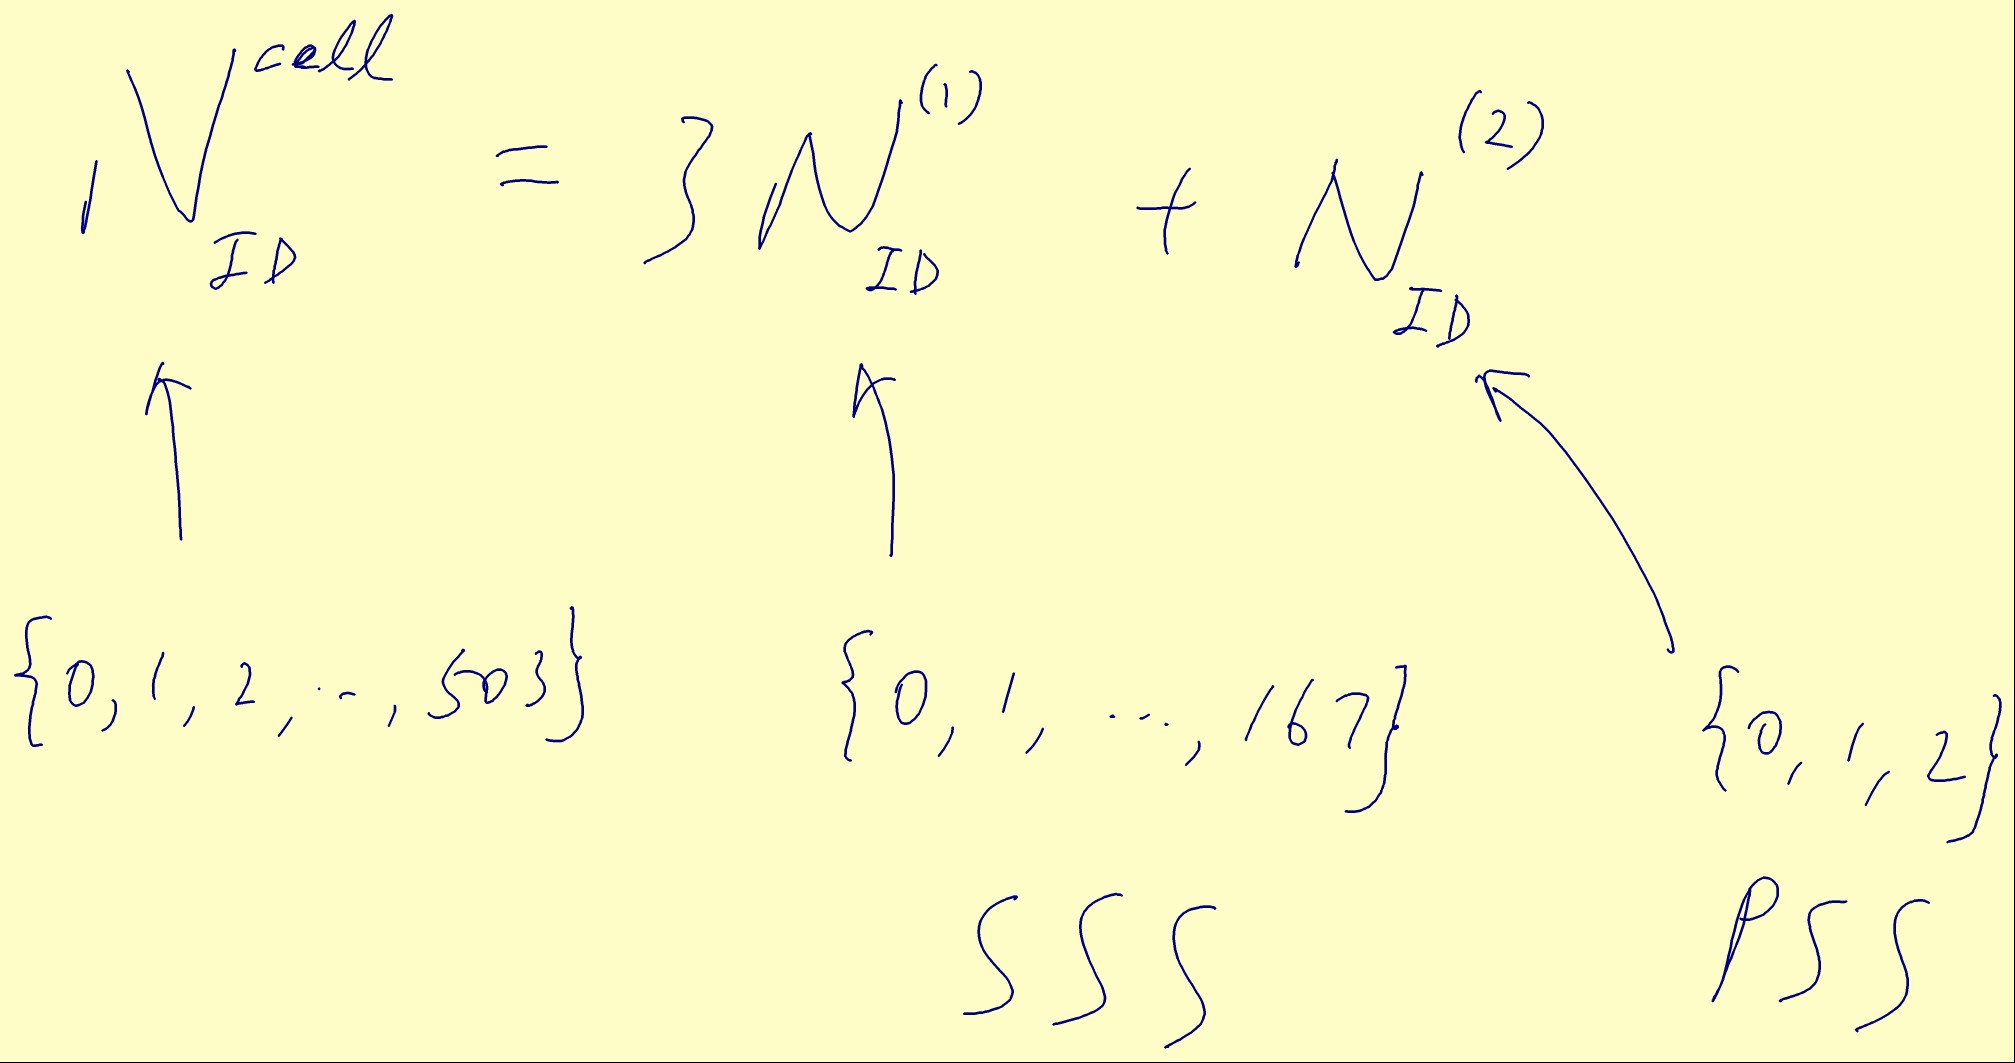 N_ID^cell = 3 N_ID^(1) + N_ID^(2)
{0, 1, 2, ..., 503} {0, 1, ..., 167} {0, 1, 2}
SSS PSS